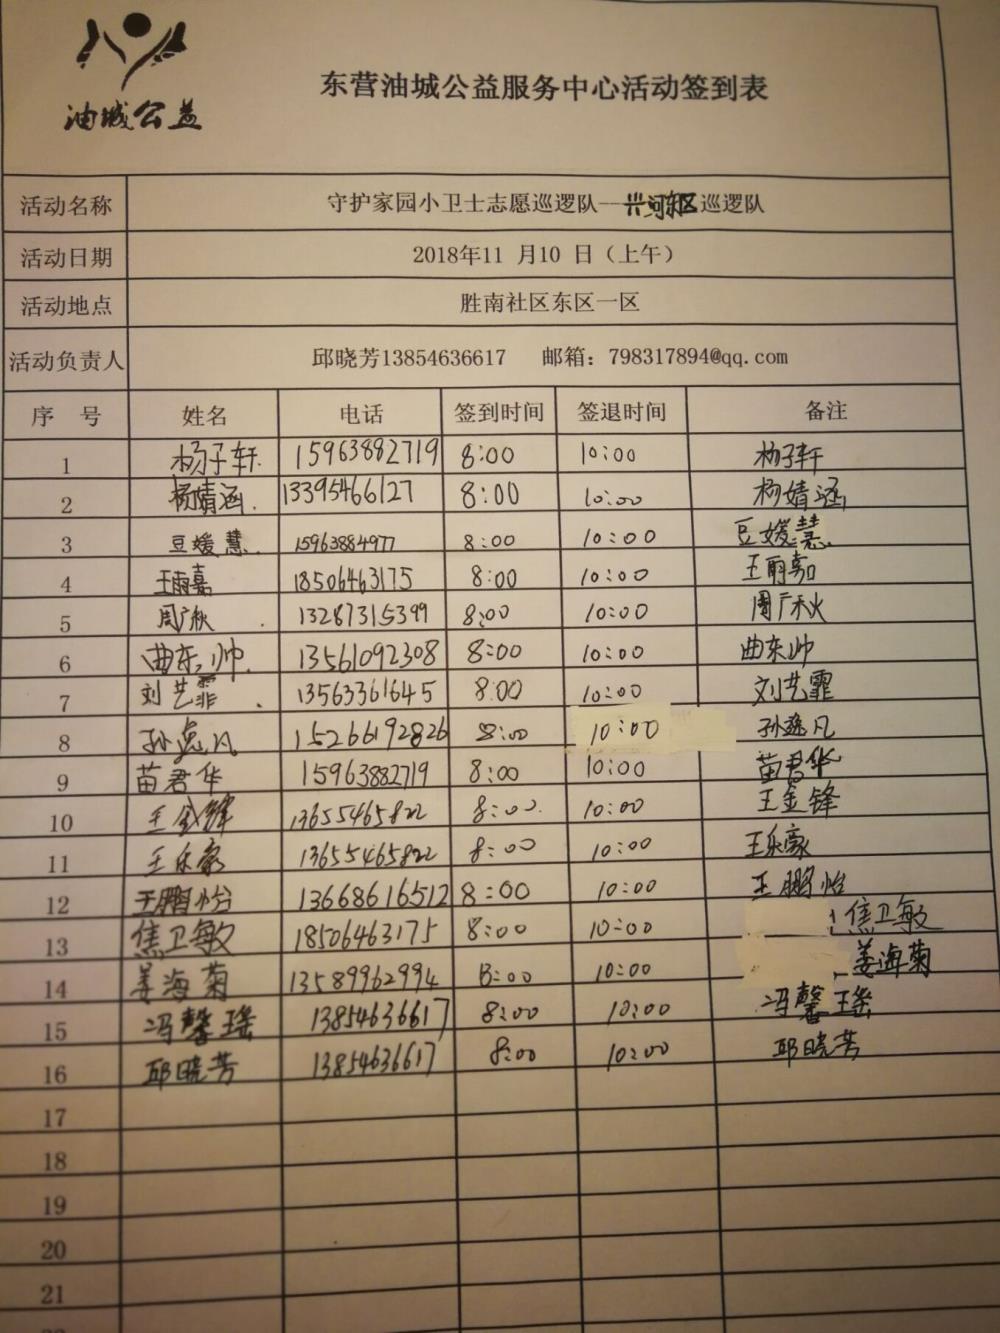 油城公益
东营油城公益服务中心活动签到表
活动名称 守护家园小卫士志愿巡逻队—兴河东区巡逻队
活动日期 2018年11 月10 日（上午）
活动地点 胜南社区东区一区
活动负责人 邱晓芳13854636617 邮箱：798317894@qq.com
序 号 姓名 电话 签到时间 签退时间 备注
1 杨子轩 15963882719 8:00 10:00 杨子轩
2 杨婧涵 13395466127 8:00 10:00 杨婧涵
3 豆媛慧 15963884977 8:00 10:00 豆媛慧
4 王雨嘉 18506463175 8:00 10:00 王雨嘉
5 周广秋 13287315399 8:00 10:00 周广秋
6 曲东帅 13561092308 8:00 10:00 曲东帅
7 刘艺霏 13563361645 8:00 10:00 刘艺霏
8 孙逸凡 15266192826 8:00 10:00 孙逸凡
9 苗君华 15963882719 8:00 10:00 苗君华
10 王金锋 13655465822 8:00 10:00 王金锋
11 王乐豪 13655465822 8:00 10:00 王乐豪
12 王鹏怡 13668616512 8:00 10:00 王鹏怡
13 焦卫敏 18506463175 8:00 10:00 焦卫敏
14 姜海菊 13589962994 8:00 10:00 姜海菊
15 冯馨瑶 13854636617 8:00 10:00 冯馨瑶
16 邱晓芳 13854636617 8:00 10:00 邱晓芳
17
18
19
20
21